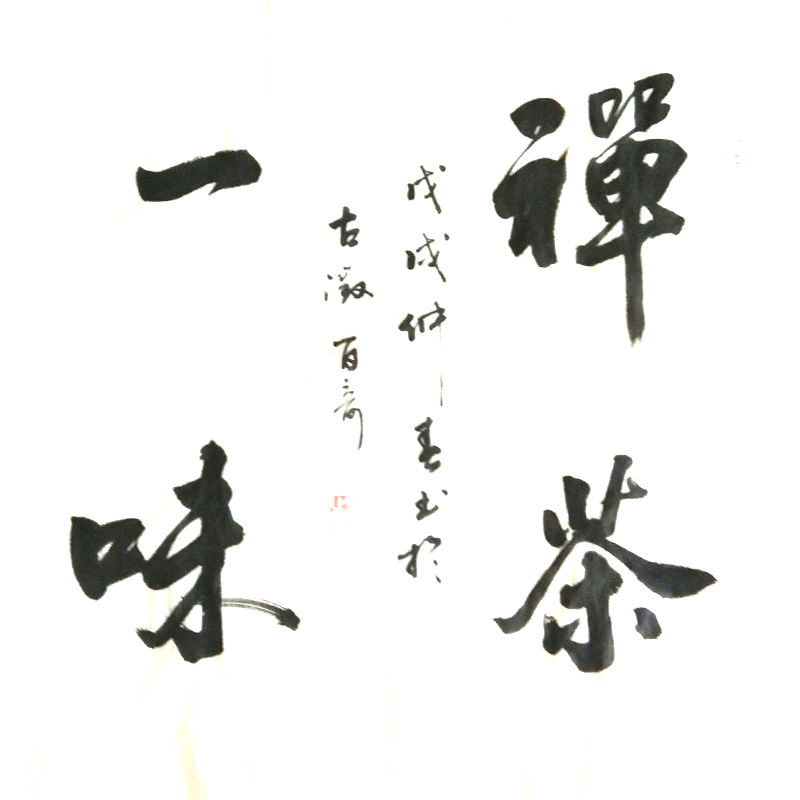 禪茶
戊戌仲春书於
古徽 百奇
一味